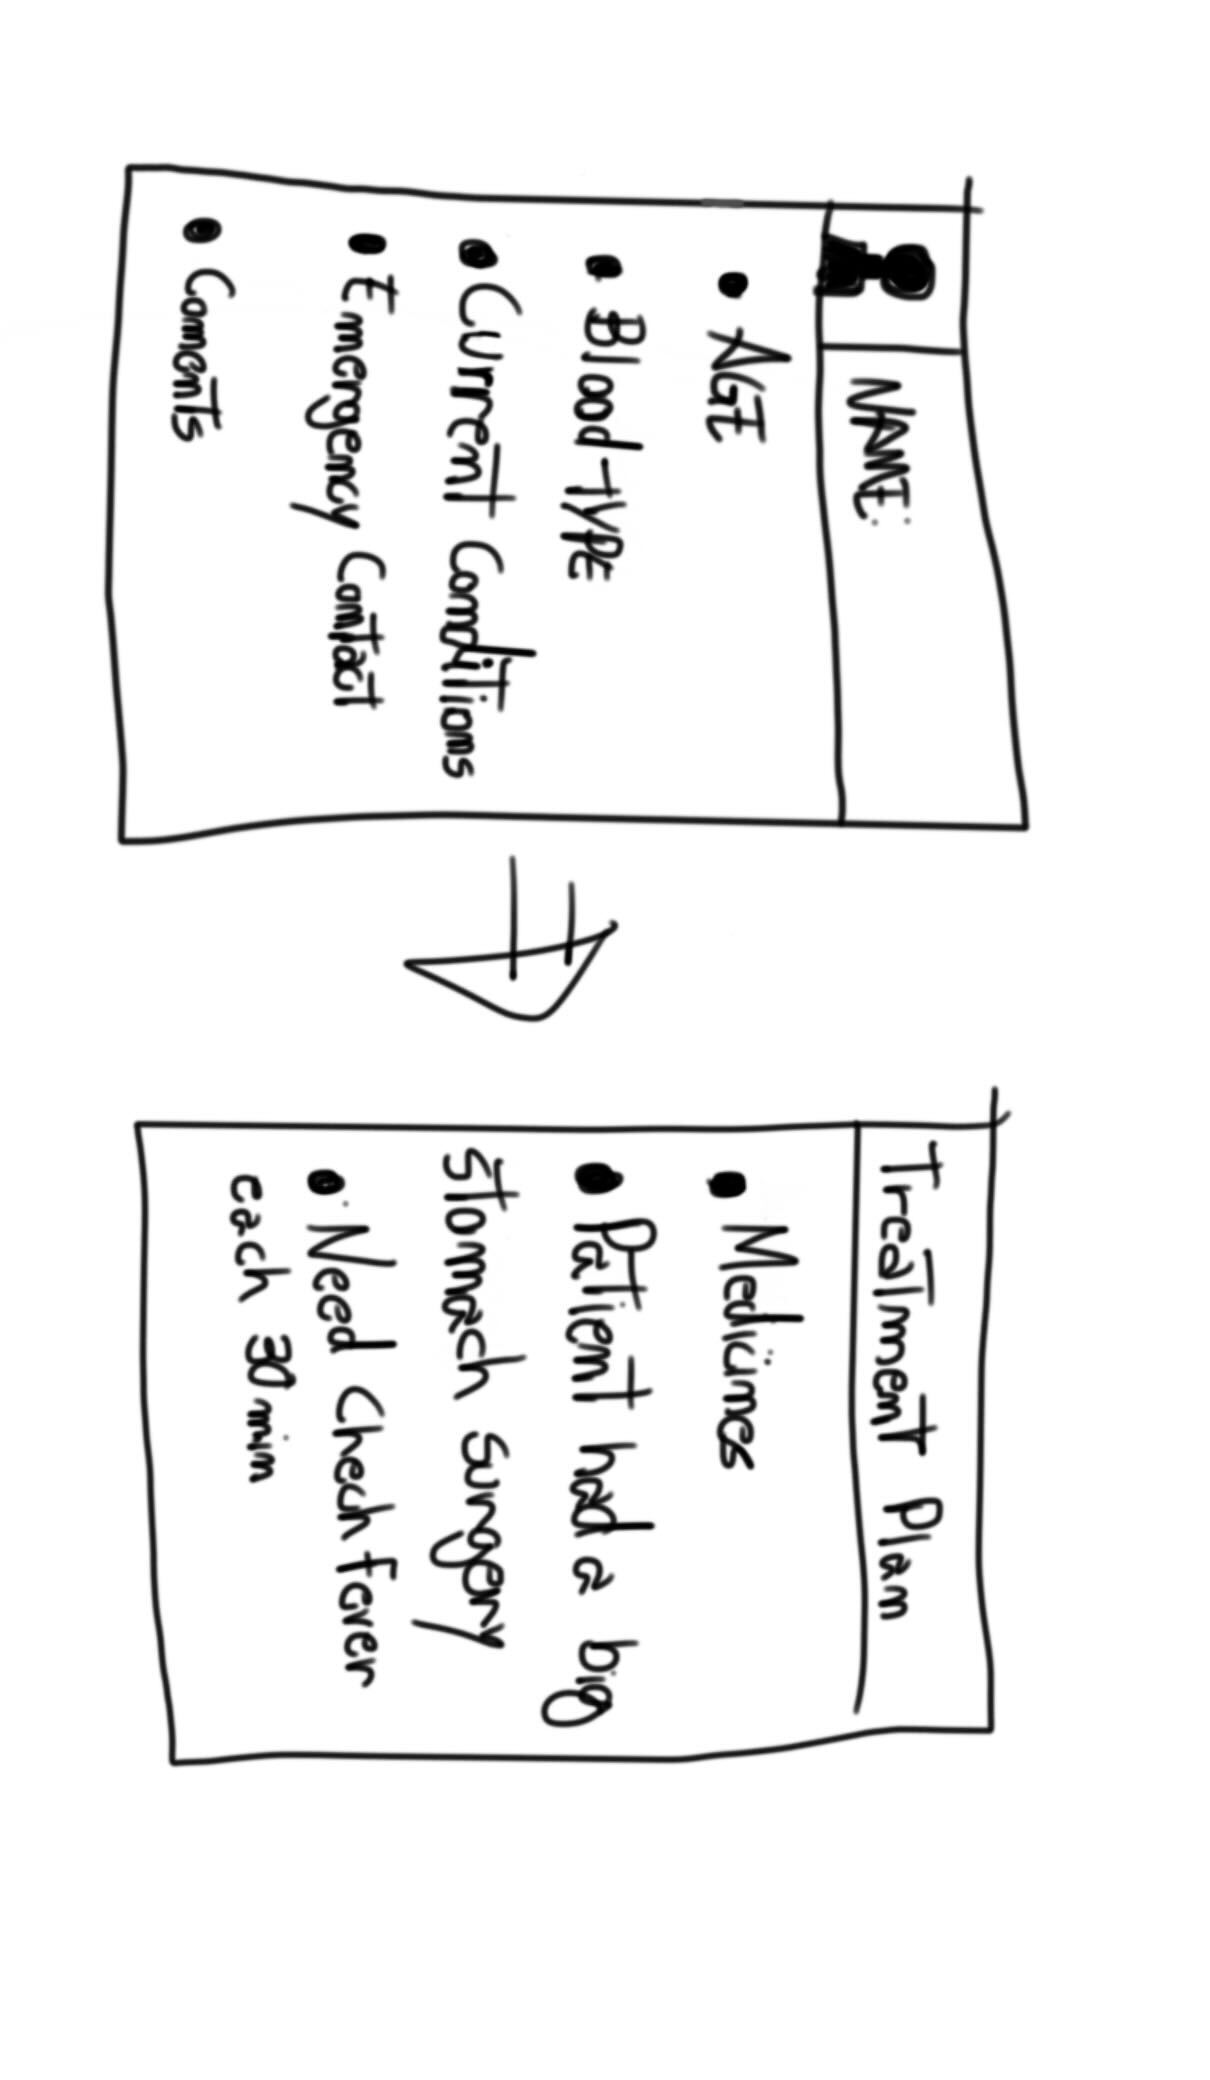 NAME:
AGE
Blood TYPE
Current Conditions
Emergency Contact
Coments
Treatment Plan
Medicines
Patient had a big
Stomach Surgery
Need Check Fever
each 30 min